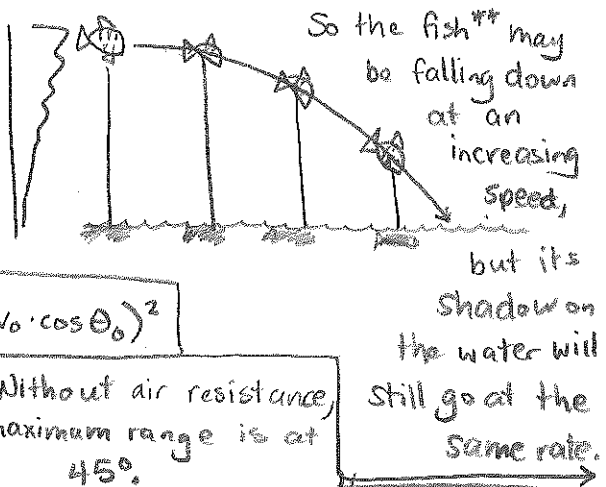 So the fish** may
be falling down
at an
increasing
speed,
but its
shadow on
the water will
still go at the
same rate.
·cosθ₀)²
Without air resistance,
maximum range is at
45°.